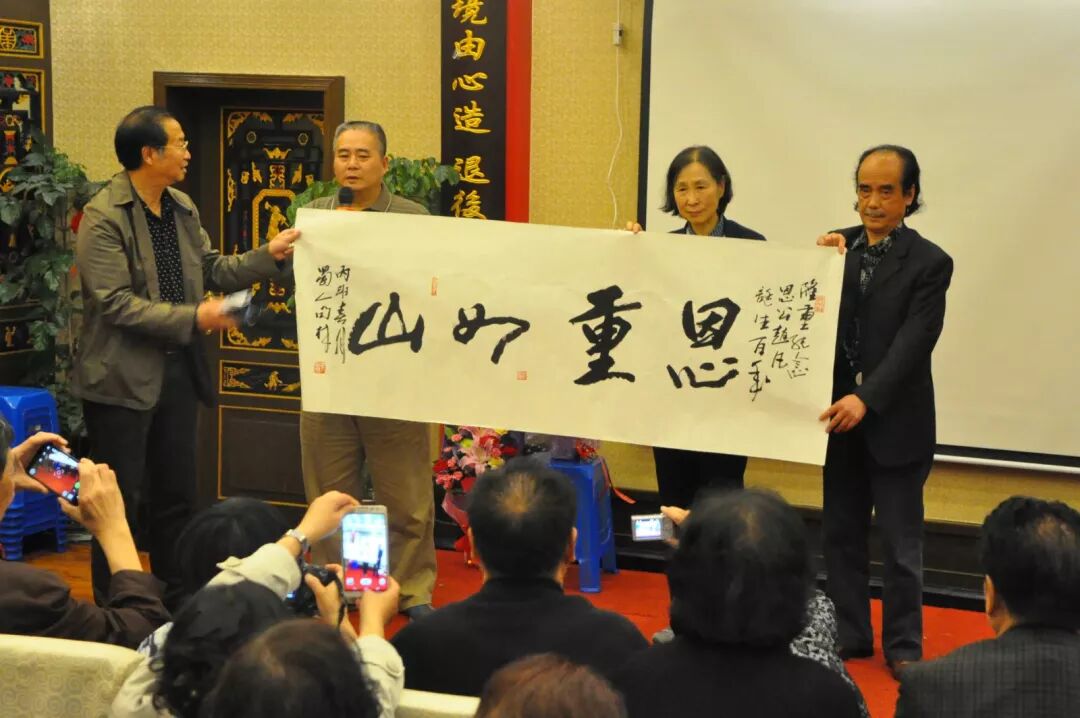 境由心造 退後
隆重纪念
恩公趙凡
誕生百年
恩重如山
丙申春月
蜀人